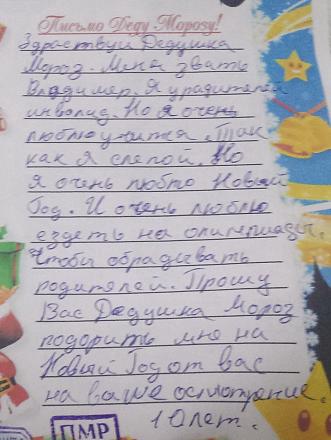 Письмо Деду Морозу!
Здраствуй Дедушка
Мороз. Меня звать
Владимер. Я урадителей
инвалид. Но я очень
люблю учится. Так
как я слепой. Но
я очень люблю Новый
Год. И очень люблю
ездеть на олимпиады.
Чтобы обрадывать
родителей. Прошу
Вас Дедушка Мороз
подорить мне на
Новый Год от вас
на ваше осмотрение.
10 лет.
ПМР